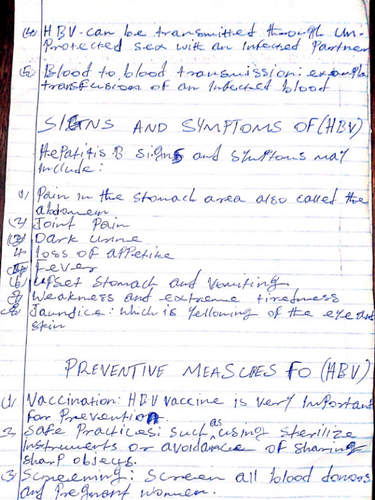 (4) HBV-can be transmitted through un-
Protected sex with an Infected Partner
(5) Blood to blood transmission: example
transfusion of an Infected blood
SIGNS AND SYMPTOMS OF (HBV)
Hepatitis B signs and symptoms may
include:
1) Pain in the stomach area also called the
abdomen
(2) Joint Pain
(3) Dark urine
4 loss of appetite
5) Fever
6) upset stomach and vomiting
7) Weakness and extreme tiredness
8) Jaundice: which is yellowing of the eye and
skin
PREVENTIVE MEASURES FO (HBV)
(1) Vaccination: HBV vaccine is very important
for prevention
2) Safe Practices: such as using sterilize
instruments or avoidance of sharing
sharp objects.
(3) Screening: Screen all blood donors
and pregnant women.